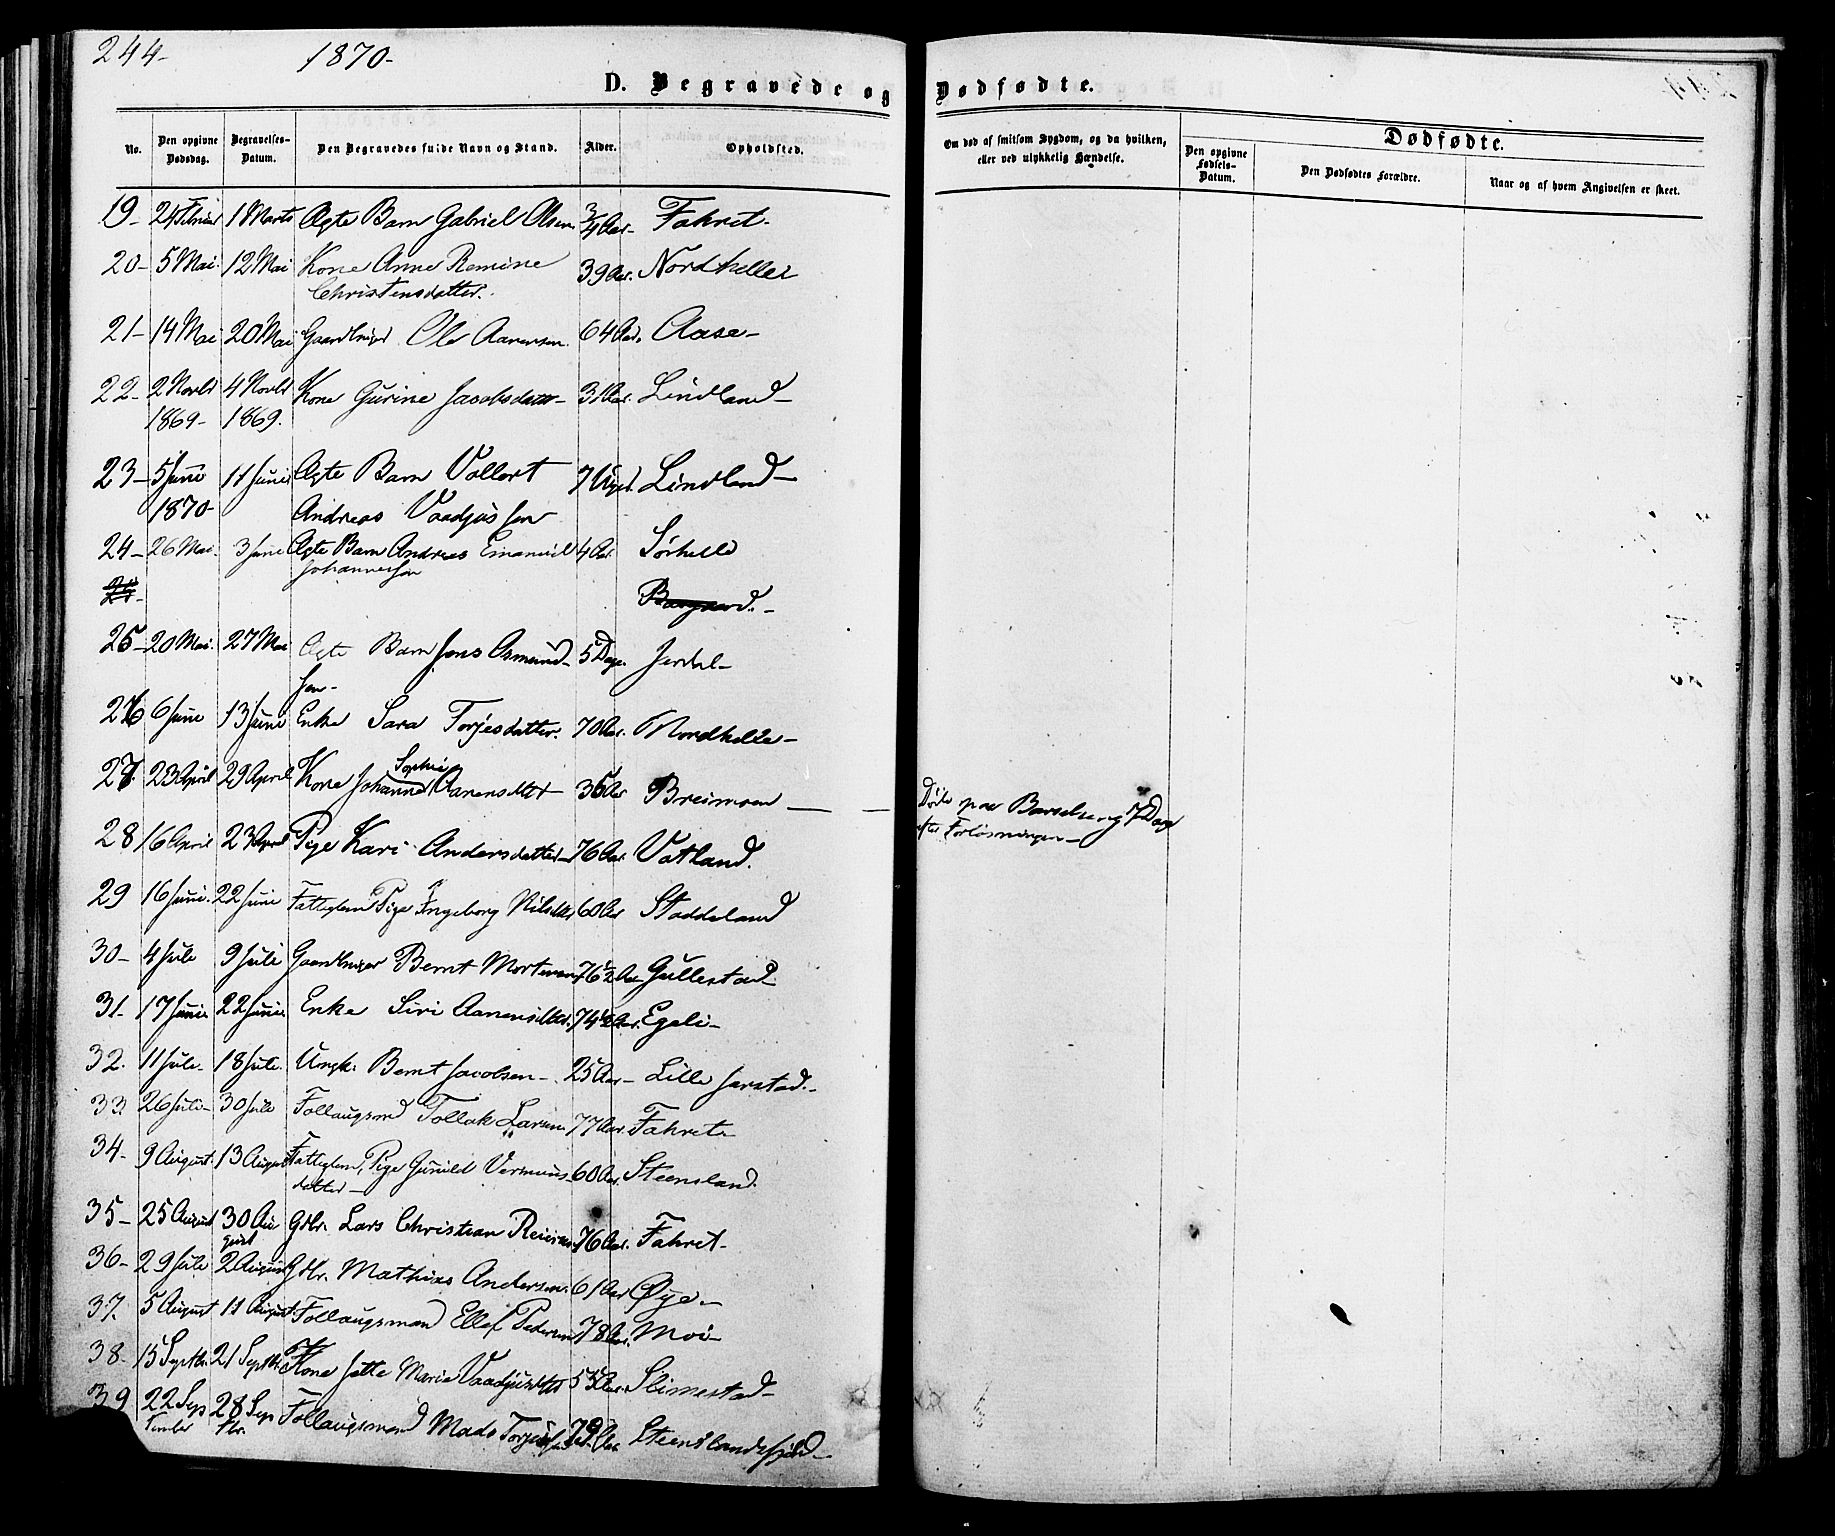 244-
1870-
D. Begravede og Dødfødte.
No. Den opgivne Dødsdag. Begravelses-Datum. Den Begravedes fulde Navn og Stand. Alder. Opholdsted. Om død af smitsom Sygdom, og da hvilken, eller ved ulykkelig Hændelse. Dødfødte.
Den opgivne Fødsels-Datum. Den Dødfødtes Forældre. Naar og af hvem Angivelsen er skeet.
19- 24 Februar 1 Marts Ægte Barn Gabriel Olsen 3/4 Aar- Fahret-
20- 5 Mai 12 Mai Kone Anne Remine 39 Aar. Nordhelle
Christensdatter.
21- 14 Mai 20 Mai Gaardbruger Ole Aanensen 64 Aar. Aase-
22- 2 Novbr 4 Novbr Kone Gurine Jacobsdatter- 31 Aar. Lindland-
1869- 1869.
23- 5 Juni 11 Juni Ægte Barn Vollert 7 Uger. Lindland-
1870- Andreas Vaadjussen
24- 26 Mai 3 Juni Ægte Barn Andreas Emanuel 4 Aar. Sørhelle
Johannessen
25- 20 Mai. 27 Mai Ægte Barn Jens Osmund- 5 Dage. Jerdal-
sen-
26 6 Juni 13 Juni Enke Sara Torjesdatter. 70 Aar. Nordhelle-
27. 23 April 29 April Kone Johanne Sophie Aanensdtr- 36 Aar Breimoen- Døde paa Barselseng 7 Dage
efter Forløsningen-
28 16 April 23 April Pige Kari Andersdatter- 76 Aar. Vatland.
29 16 Juni. 22 Juni Fattiglem Pige Ingeborg Nilsdtr 60 Aar Stoddeland
30- 4 Juli 9 Juli Gaardbruger Bernt Mortensen 76 1/2 Aar Gullestad-
31- 17 Juni 22 Juni Enke Siri Aanensdtter. 74 1/2 Aar. Egeli-
32. 11 Juli- 18 Juli. Ungk. Bernt Jacobsen- 25 Aar- Lille Jerstad.-
33. 26 Juli- 30 Juli Follaugsmd Tollak Larsen 77 Aar. Fahret-
34- 9 August. 13 August Fattiglem, Pige Gunild Vermuns- 60 Aar. Steensland.
datter-
35- 25 August 30 Au Gbr. Lars Christian Reiersen 76 Aar. Fahret-
gust
36- 29 Juli 2 August Gbr. Mathias Andersen. 61 Aar Øye-
37. 5 August 11 August. Follaugsmand Ellef Pedersen 78 Aar. Moi-
38- 15 Septbr. 21 Septbr. Kone Jette Marie Vaadjusdtr Aar. Slimestad-
39 22 Sep 28 Sep Follaugsmand Mads Torjussen 79 Aar Steenslandsfjeld-
tember tbr.